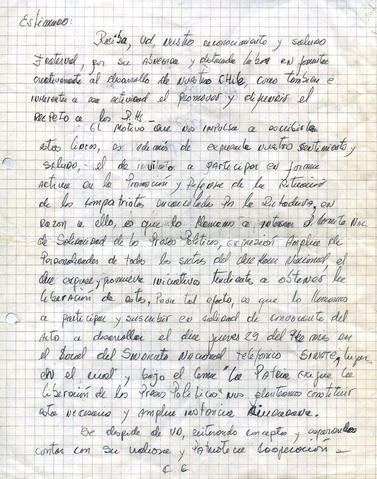 Estimado:
Reciba, Ud, nuestro reconocimiento y saludo
fraternal, por su abnegada y destacada labor en
al desarrollo de nuestro Chile, como tambien e
inherente a su actividad el promover y defender el
respeto a los
El motivo que nos impulsa a escribirle
estas lineas, es además de expresarle nuestro sentimiento y
saludo, el de invitarlo a participar en forma
activa en la Promocion y Defensa de la situación
de los compatriotas encarcelados por la Dictadura, en
razon a ello, es que lo llamamos a
de Solidaridad de los Presos Politicos, expresión amplia de
Personalidades de todos los sectores del Nacional, el
que expone y promueve iniciativas tendiente a obtener la
liberación de estos, Para tal efecto, es que lo llamamos
a participar y suscribir en calidad de convocante del
Acto a desarrollar el día jueves 29 del mes en
el local del Sindicato Nacional telefonico lugar
en el cual, y bajo el lema "La Patria exige la
liberación de los Presos Politicos" nos planteamos constituir
esta necesaria y amplia instancia
Se despide de UD, reiterando conceptos y esperando
contar con su valiosa y Patriotica Cooperación -